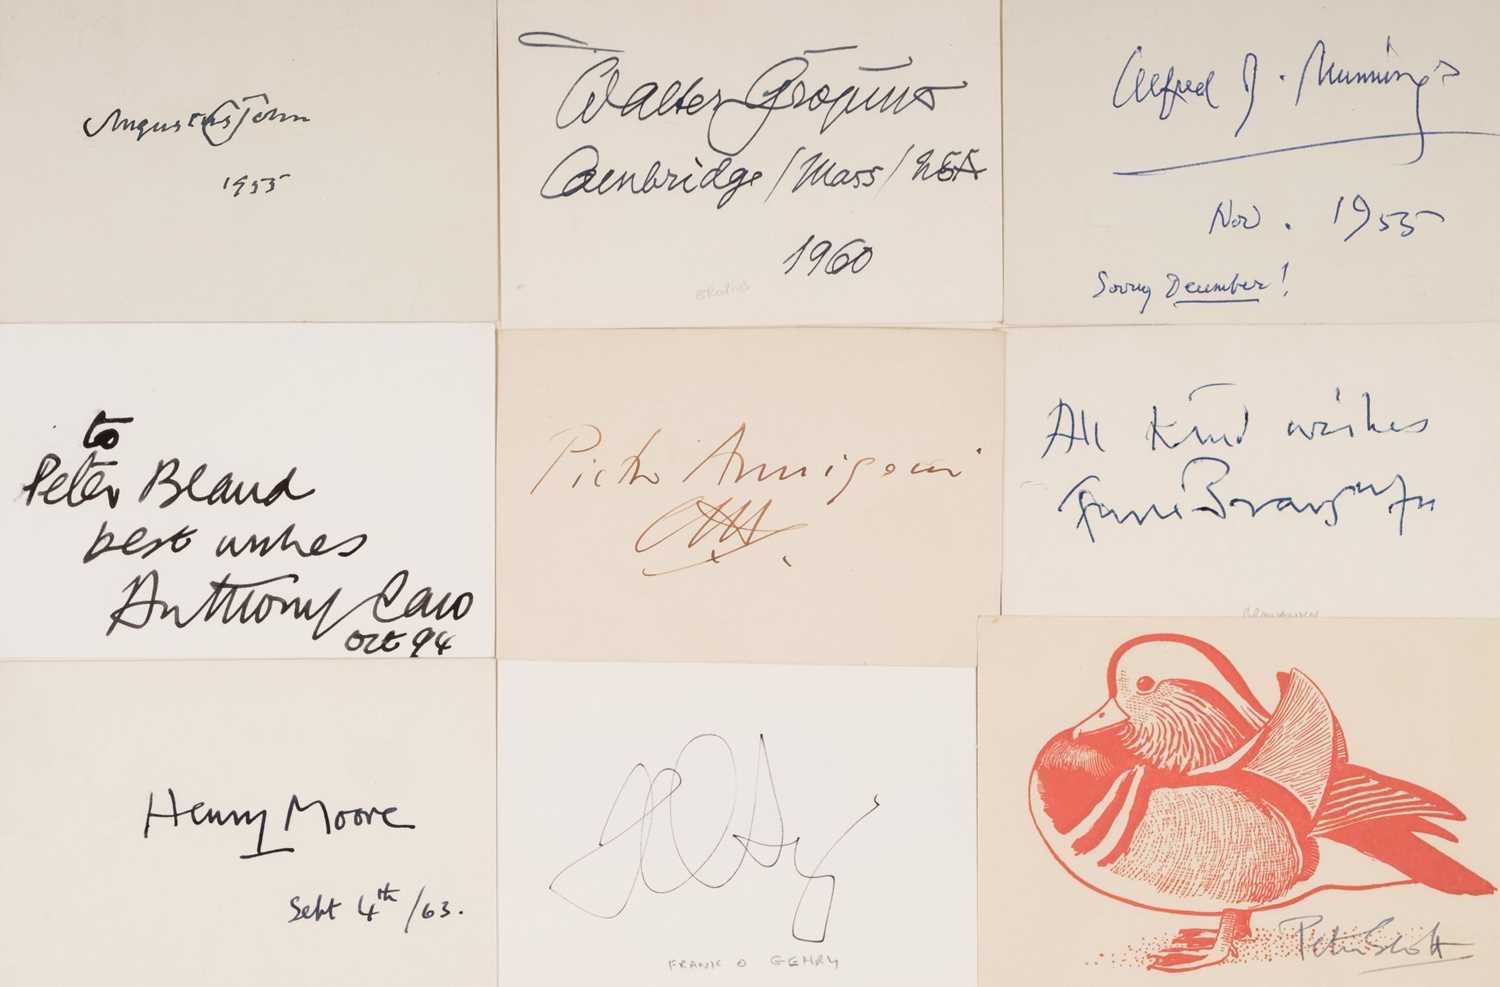 Augustus John
1955
Walter Gropius
Cambridge / Mass / USA
1960
GROPIUS
Alfred J. Munnings
Nov. 1955
Sorry December!
to
Peter Bland
best wishes
Anthony Caro
Oct 94
Pietro Annigoni
All kind wishes
Frank Brangwyn
BRANGWYN
Henry Moore
Sept 4th /63.
FRANK O GEHRY
Peter Scott